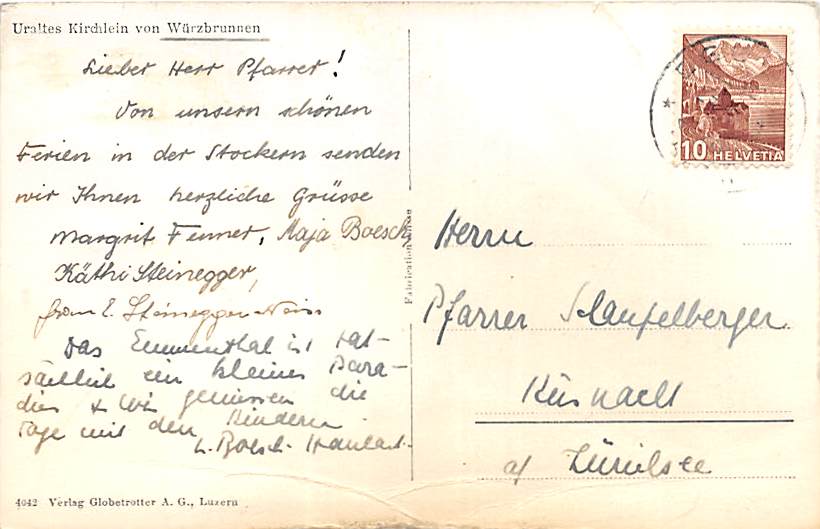 Uraltes Kirchlein von Würzbrunnen
Lieber Herr Pfarrer!
Von unsern schönen
Ferien in der Stockern senden
wir Ihnen herzliche Grüsse
Margrit Fenner, Maja Boesch,
Käthi Steinegger,
E. Steinegger
Das Emmenthal ist tat-
sächlich ein kleines Para-
dies & wir geniessen die
Tage mit den Kindern
L. Boesch
4042 Verlag Globetrotter A. G., Luzern
10 HELVETIA
Herrn
Pfarrer Schaufelberger
Küsnacht
a/ Zürichsee